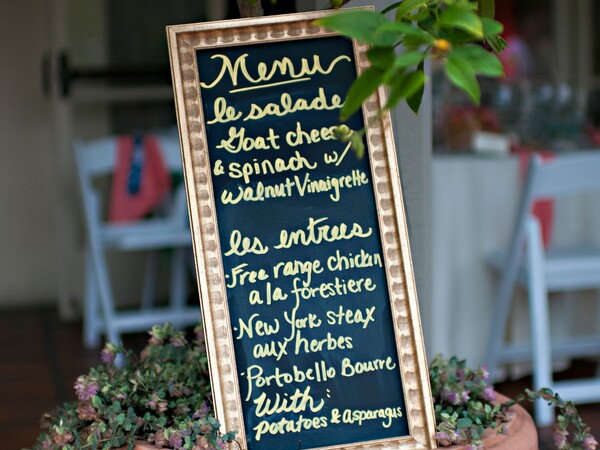 Menu
le salade
Goat cheese
& spinach w/
walnut Vinaigrette
les entrees
·Free range chickin
a la forestiere
·New York steax
aux herbes
·Portobello Bourre
With:
potatoes & Asparagus